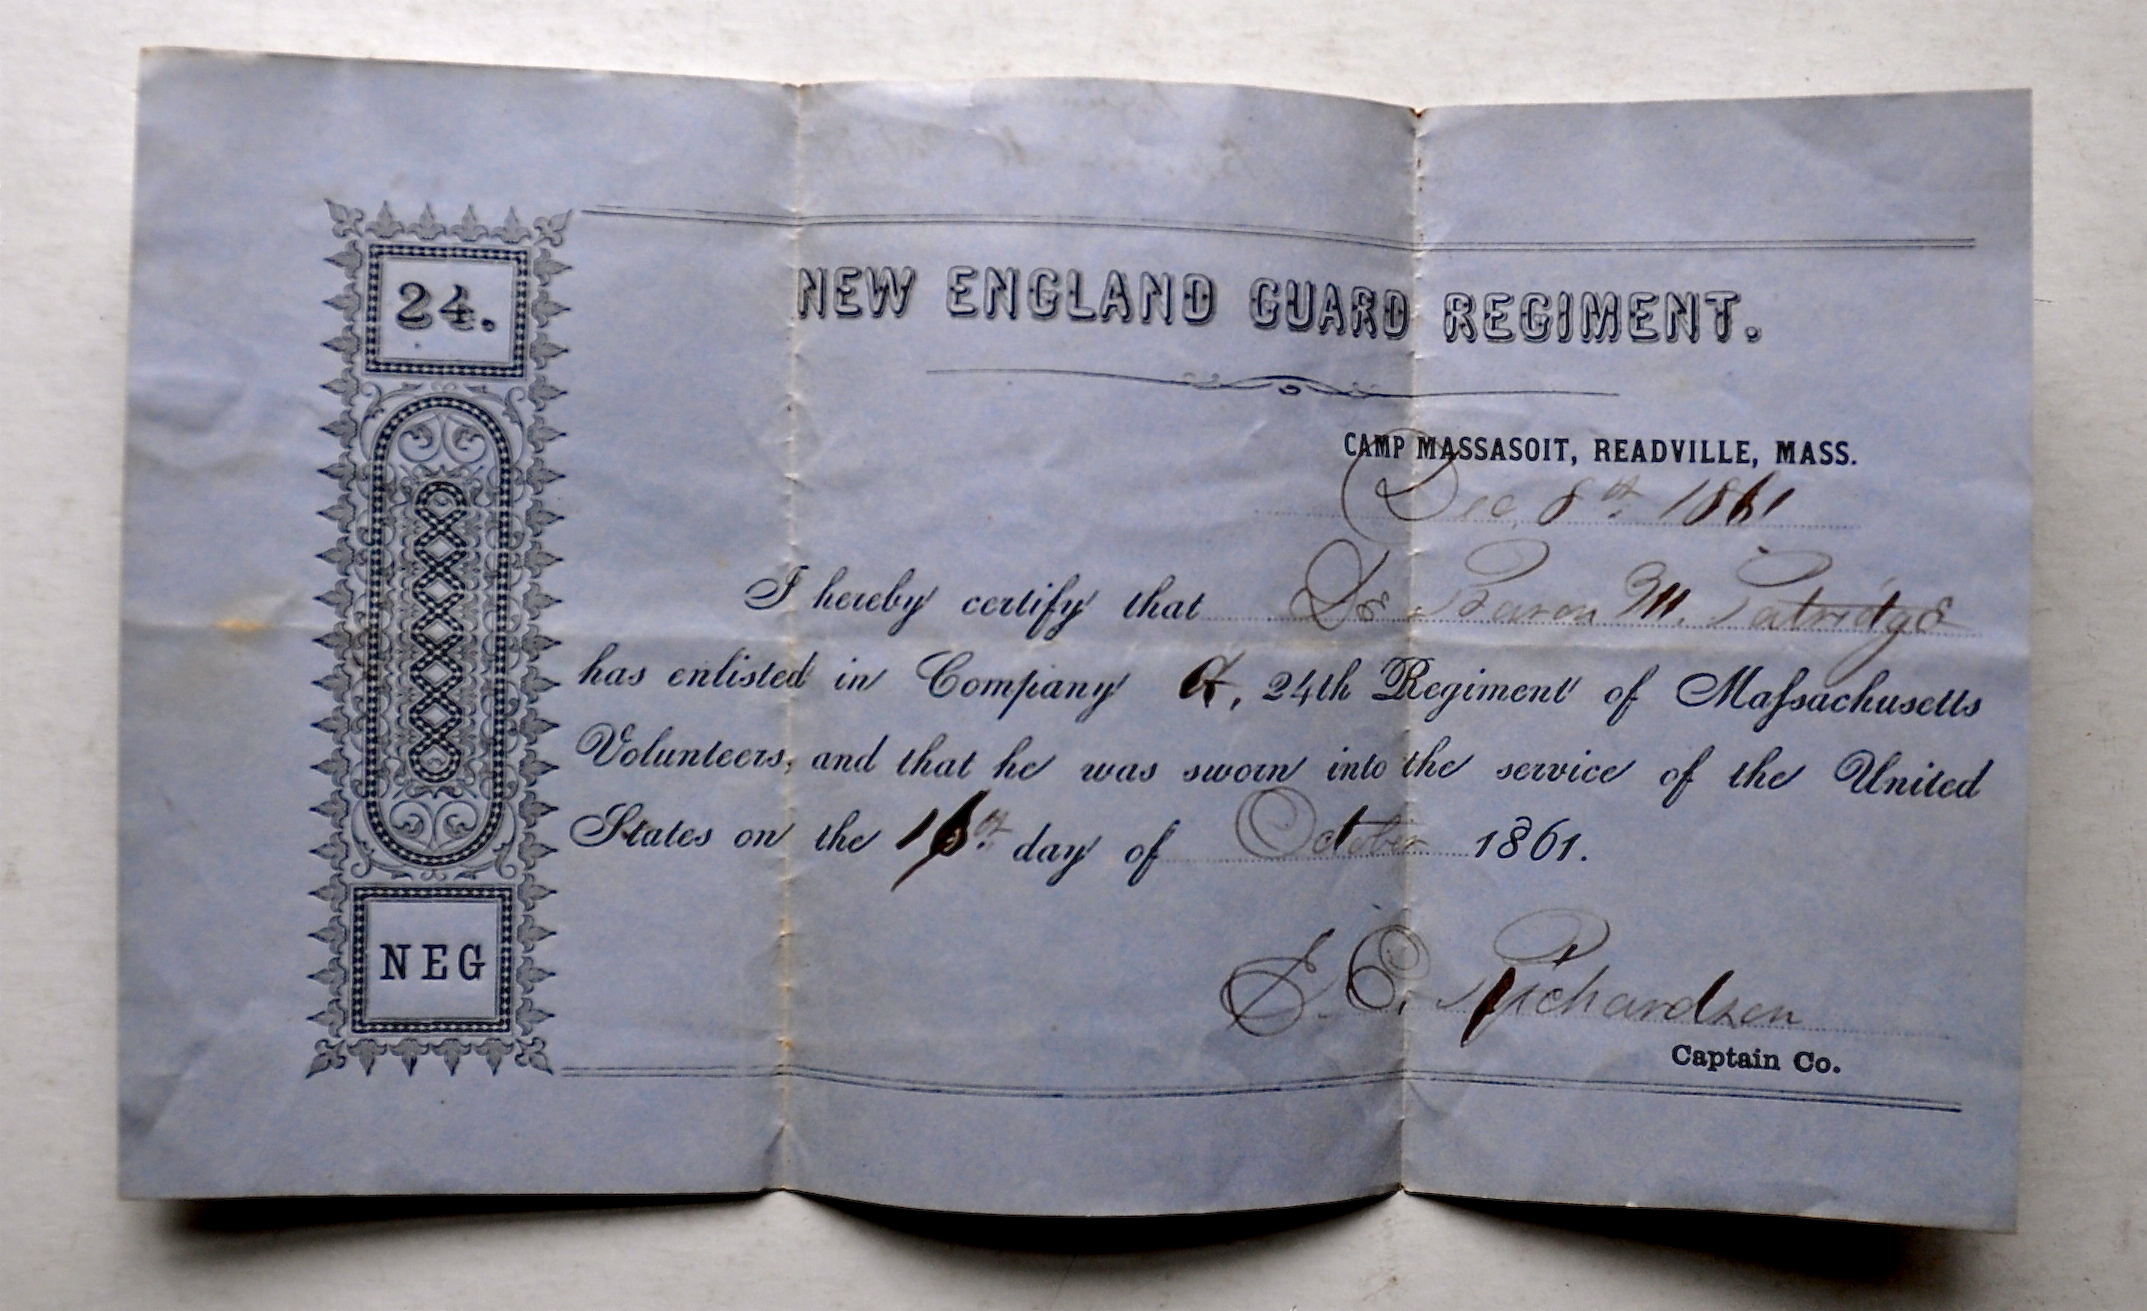 24.
NEW ENGLAND GUARD REGIMENT.
CAMP MASSASOIT, READVILLE, MASS.
Dec. 8th 1861
I hereby certify that Baron M. Patridge
has enlisted in Company 24th Regiment of Massachusetts
Volunteers, and that he was sworn into the service of the United
States on the day of October 1861.
NEG
E. Richardson
Captain Co.